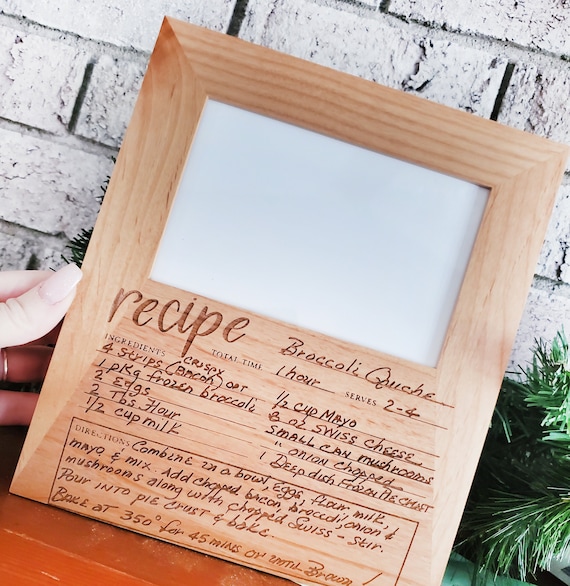 recipe Broccoli Quiche
TOTAL TIME 1 hour SERVES 2-4
INGREDIENTS CRISPY
4 Strips (BACON)
1 pkg frozen broccoli
2 Eggs
2 Tbs. flour
1/2 cup milk
1/2 cup MAYO
8 oz SWISS cheese
small can mushrooms
" ONION chopped
1 Deep dish Frozen Pie crust
DIRECTIONS Combine in a bowl Eggs, flour, milk,
mayo & mix. Add chopped bacon, broccoli, onion &
mushrooms along with chopped Swiss - stir.
Pour into pie crust & bake.
Bake at 350° for 45 mins or until Brown